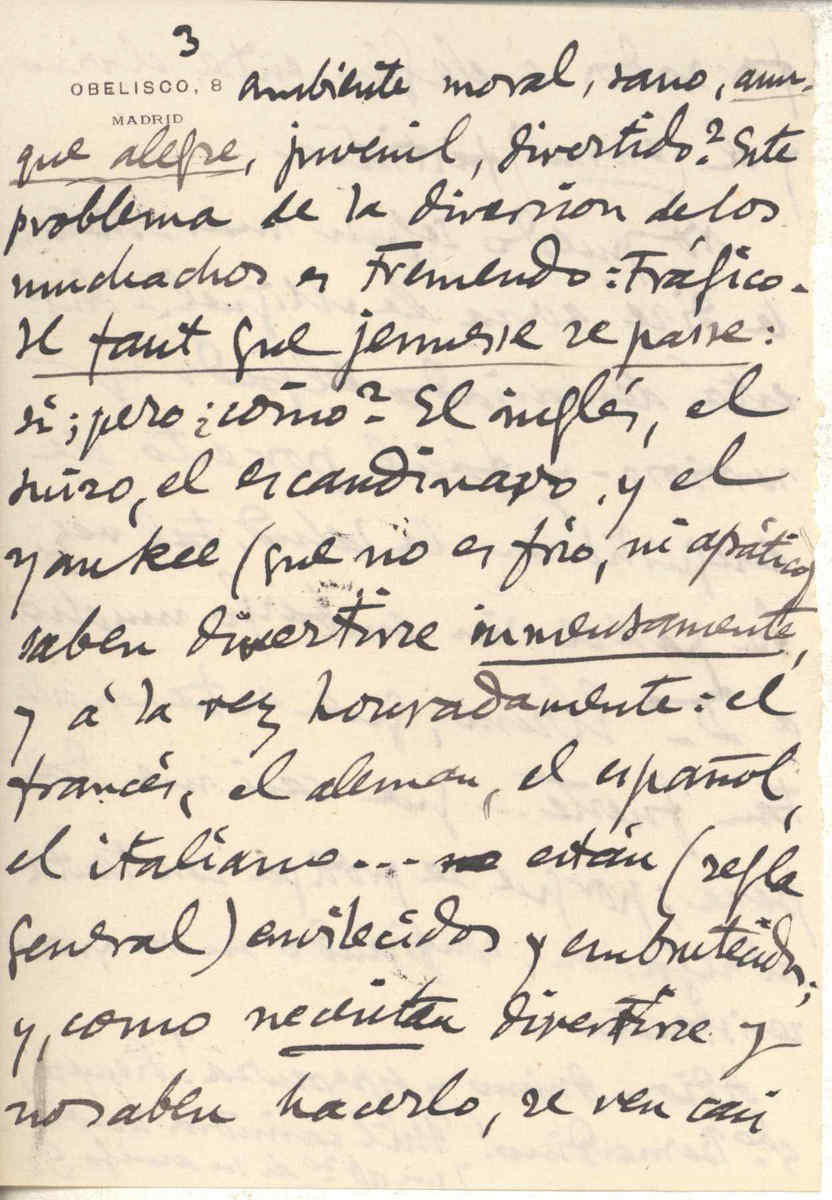 3
OBELISCO, 8
MADRID
ambiente moral, sano, aun-
que alegre, juvenil, divertido? Este
problema de la diversion de los
muchachos es tremendo: trágico.
Il faut que jeunesse se passe:
si; pero ¿cómo? El inglés, el
suizo, el escandinavo, y el
yankee (que no es frio, ni apático)
saben divertirse inmensamente,
y á la vez honradamente: el
francés, el aleman, el español,
el italiano... están (regla
general) envilecidos y embrutecidos;
y, como necesitan divertirse y
no saben hacerlo, se ven casi